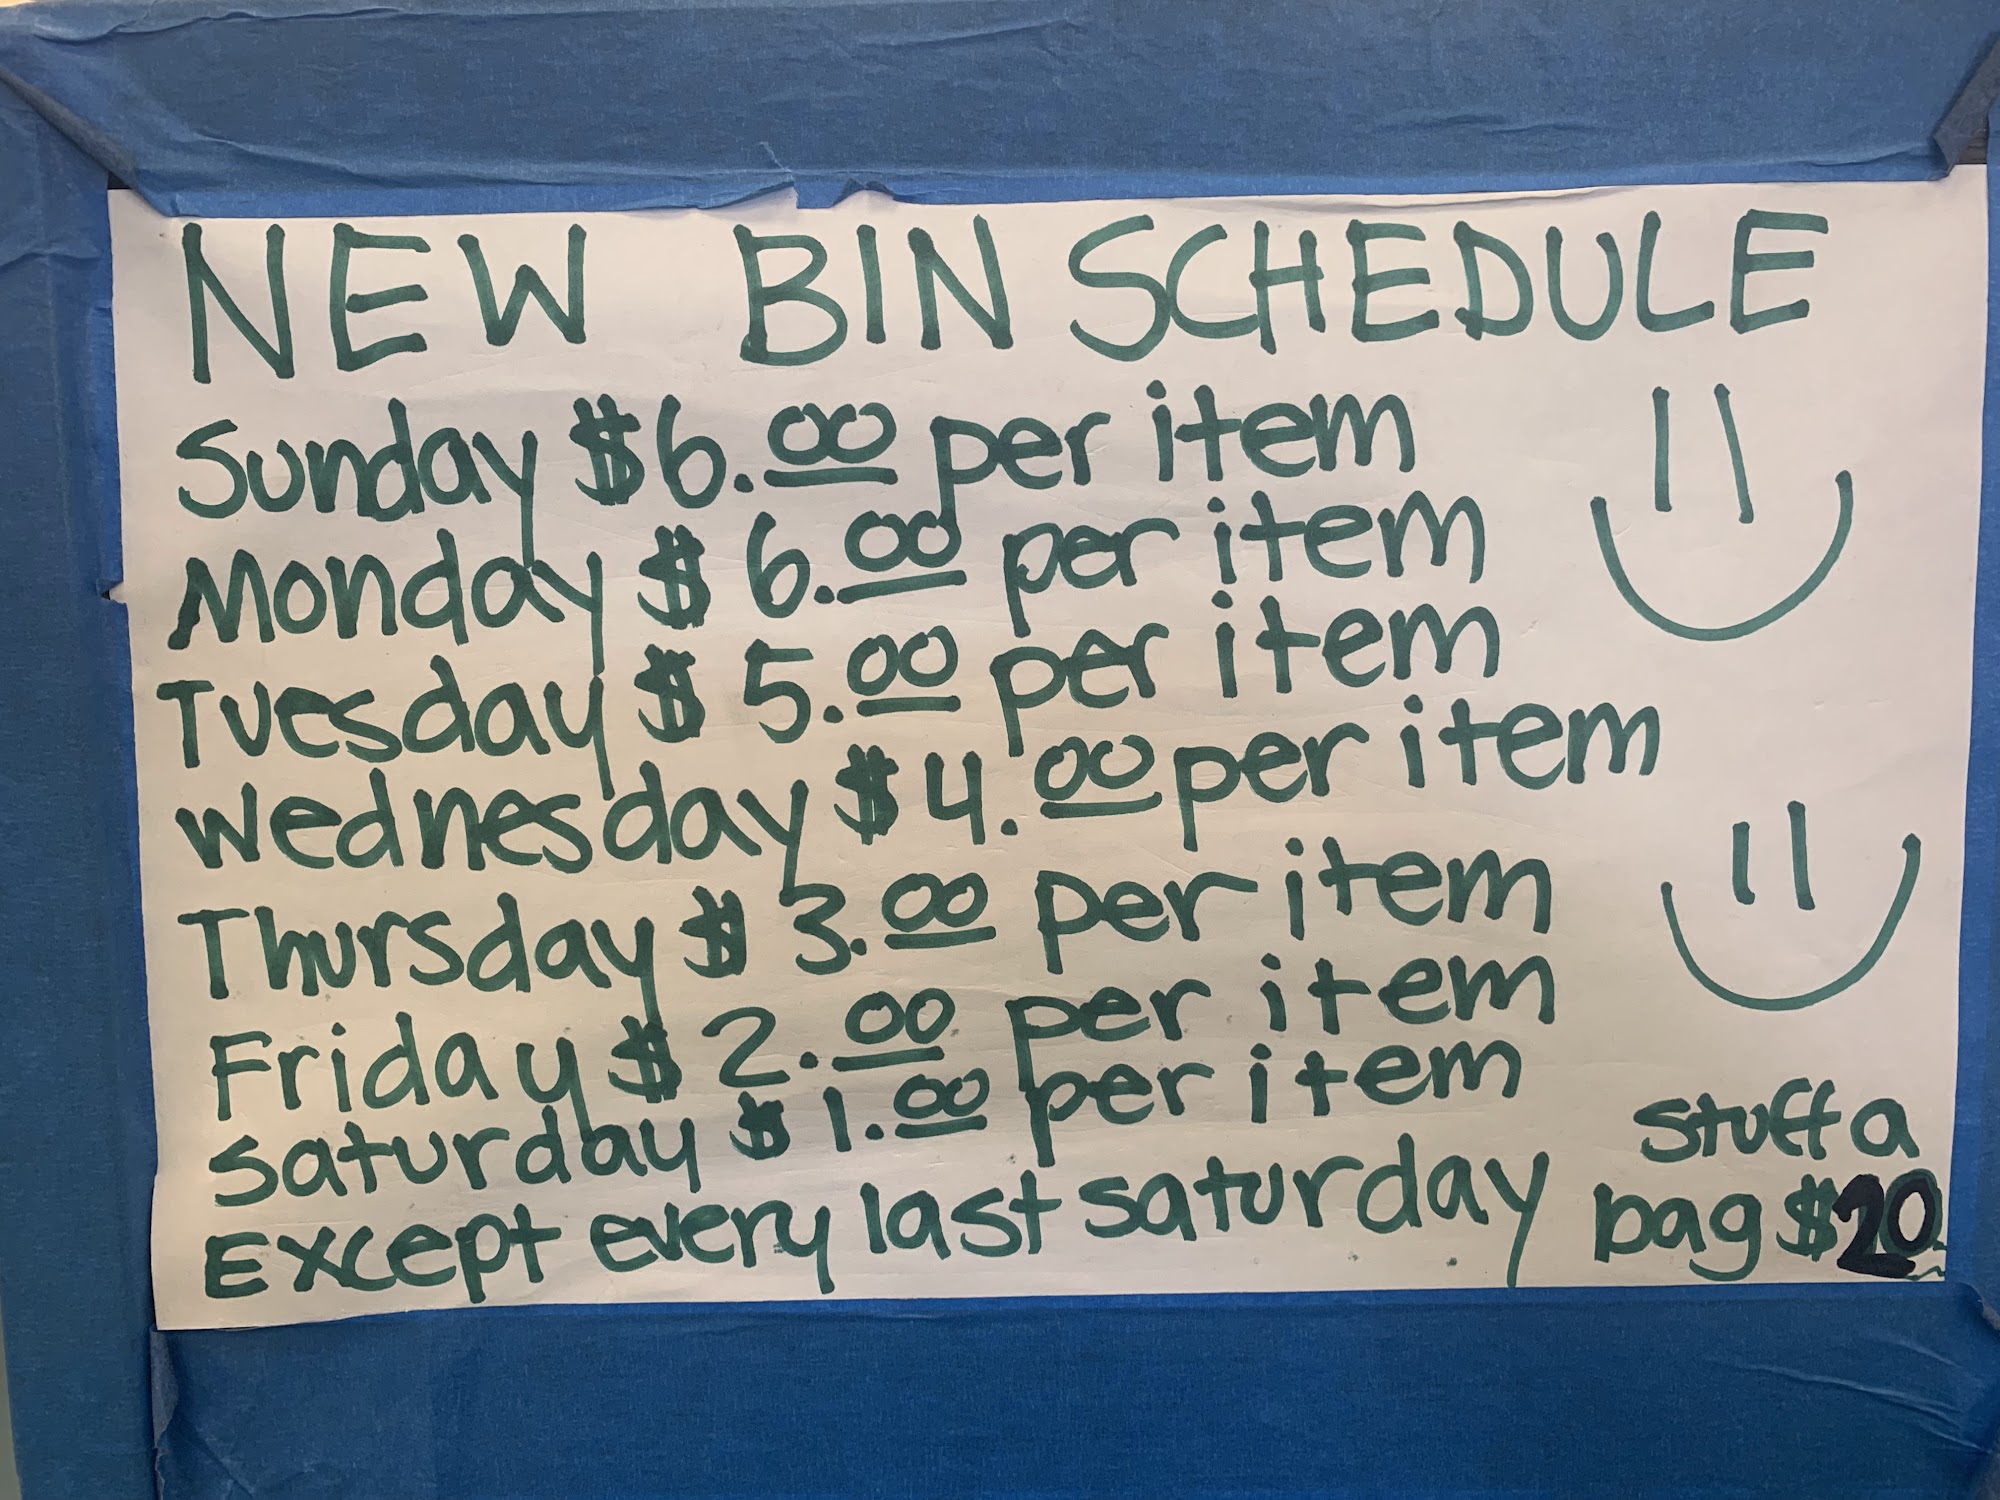 NEW BIN SCHEDULE
Sunday $6.00 per item
Monday $6.00 per item
Tuesday $5.00 per item
Wednesday $4.00 per item
Thursday $3.00 per item
Friday $2.00 per item
Saturday $1.00 per item
Except every last saturday
stuff a
bag $20